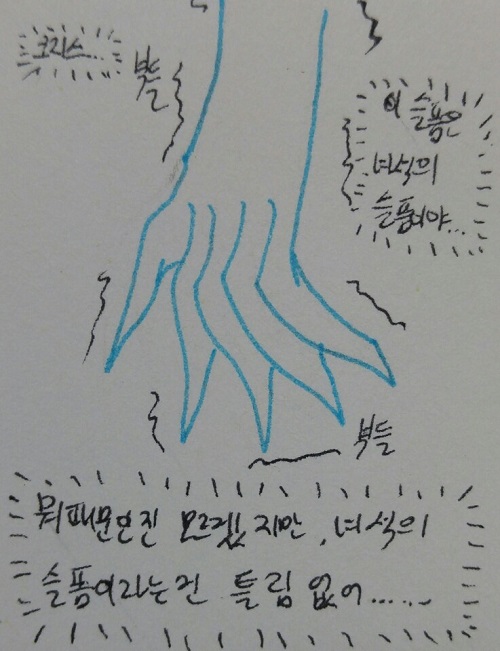 크리스...
부들
이 슬픔은
녀석의
슬픔이야...
부들
뭐때문인진 모르겠지만, 녀석의
슬픔이라는건 틀림 없어......